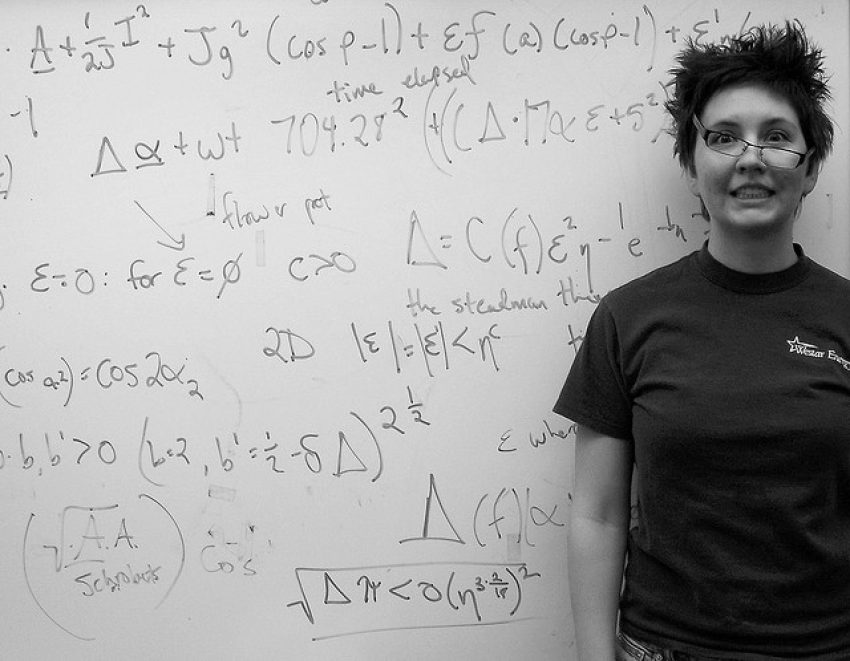 . A + 1/2J I² + Jg² (cos p - 1) + εf (a) (cos p - 1) + ε'
time elapsed
-1
Δα + w + 704.28² + ((Δ · Mα ε + 5²
flower pot
ε = 0 : for ε = ø c > 0 Δ = C (f) ε² η - 1 e
the steadman
2D |ε| = |ε| < η^c
(cos a,2) = cos 2α₂
b, b' > 0 (b = 2, b' = 1/2 - δ Δ) 2 1/2
ε where
Δ (f) (α
(√A.A.) cos
√Δ π < 0 (η^3·2/18)²
Westar Energ